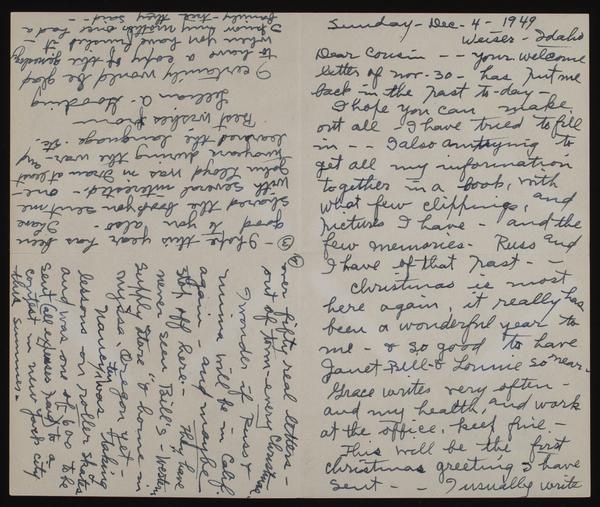 Sunday - Dec - 4 - 1949
Weiser - Idaho
Dear Cousin - - Your welcome
letter of Nov - 30 - has put me
back in the past to-day -
I hope you can make
out all - I have tried to fill
in - - I also am trying to
get all my information
together in a book, with
what few clippings, and
pictures I have - and the
few memories - Russ and
I have of that past - -
Christmas is most
here again, it really has
been a wonderful year to
me - & so good to have
Janet Bill & Lonnie so near.
Grace writes very often -
and my health, and work
at the office, keep fine. -
This will be the first
Christmas greeting I have
sent - - I usually write
over fifty real letters -
out of town - every Christmas,
I wonder if Russ &
Minna will be in Calif.
again - and maybe
stop off here - They have
never seen Bill's Western
Supply Store & home in
Nyssa, Oregon yet -
Nancy was taking
lessons on roller skates
and was one of 600 to be
sent all expenses paid to a
contest in New York City
this summer.
③ - I hope this year has been
good to you also - I have
shared the book you sent me
with several interested - one -
John Lloyd was in Iran at least
during the war - and
learned the language - etc.
Best wishes from
Lillian A. Gooding
I certainly would be glad
to have a copy of the genealogy
when you have finished it -
I know my mother once had a
family - tree they said - -